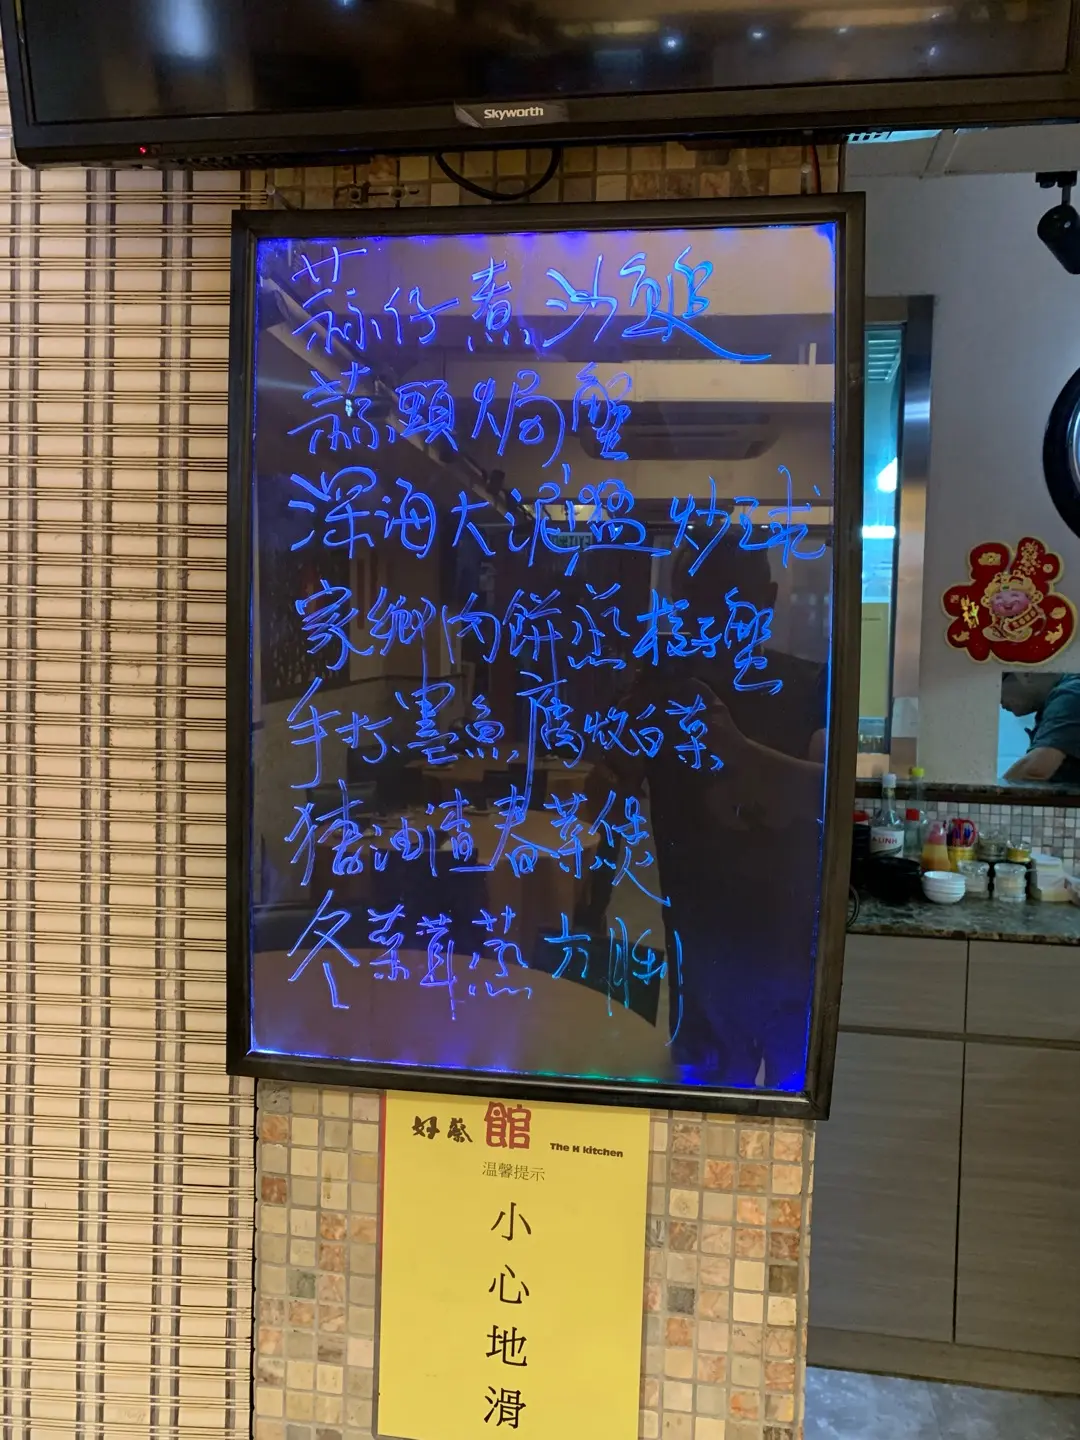 Skyworth
蒜仔煮沙
蒜頭焗蟹
深海大泥猛炒球
家鄉肉餅蒸樣子蟹
手打墨魚腐炆白菜
猪油渣春菜煲
冬菜茸蒸方脷
好蔡館
The H kitchen
温馨提示
小
心
地
滑